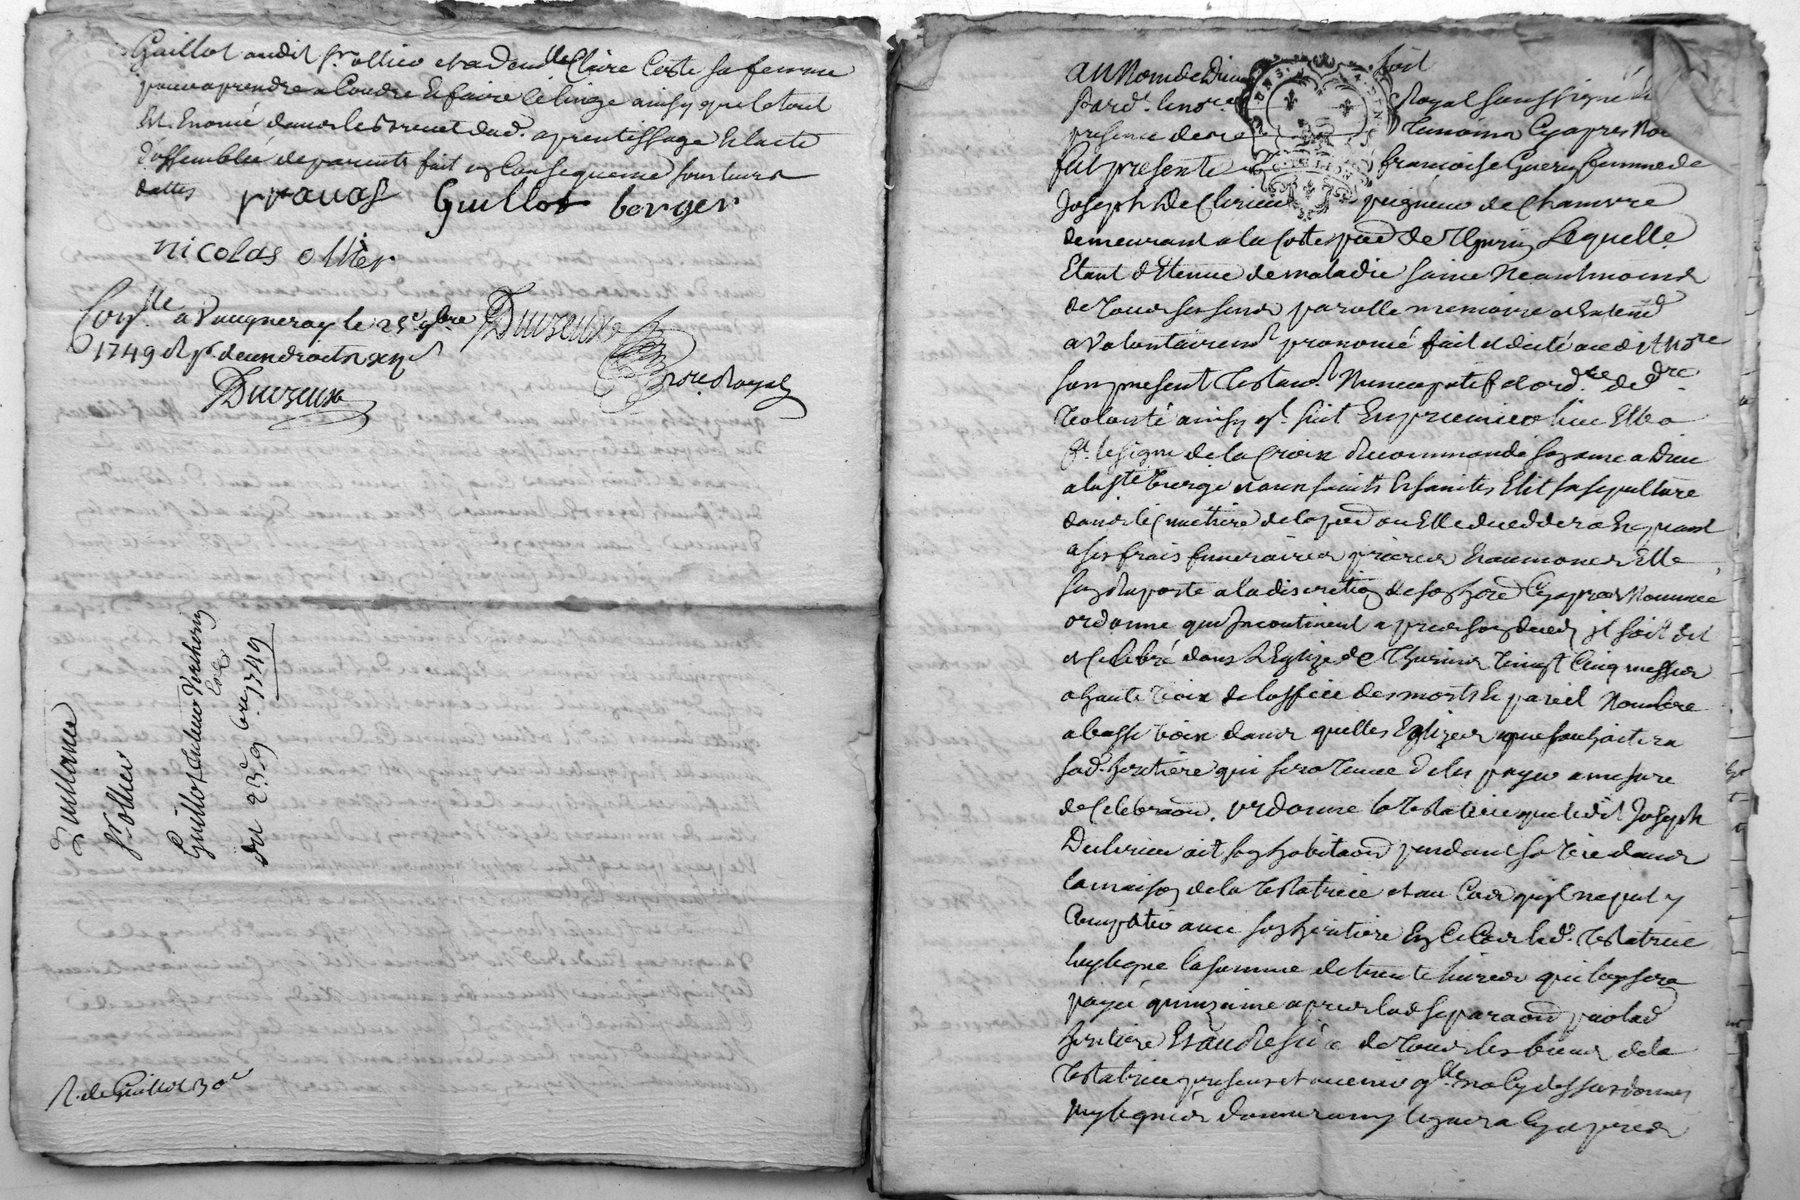 Guillot audit Sr ollier et a demlle Claire Coste sa femme
pour aprendre a Coudre et faire le linge ainsy quil est tout
Et Enoncé dans les brevet dud. aprentissage et lacte
d'assemblée de parents fait en Consequence sous leurs
dattes pravas Guillot berger
nicolas ollier
a Vaugneray le 25e 9bre Duvzeuxe
1749
Duvzeuxe Roial
Quittance
Sr ollier
Guillot
du 23e 9bre 1749
R. de Guillot 30s
au Nom de Dieu soit
Pard. le nore Royal soussigné
presence de Temoins Cyapres Nom
fut presente francoise Guerin femme de
Joseph Declerieu peigneur de Chamvre
demeurant a la Coste parr de Thurin Laquelle
Etant detenue de maladie saine Neantmoins
de tous ses sens parolle memoire et Entend
a Volontairemt prononcé fait et dicté audit Nore
son present Testamt Nuncupatif et ordce de dre
Volonté ainsy qt suit En premier lieu Elle a
ft le signe de la Croix Recommandé son ame a Dieu
a la ste Vierge et aux saints Et saintes Elit sa sepulture
dans le Cimetiere de la parr ou Elle decedera En quant
a ses frais funeraires prieres Et aumones Elle
sen Raporte a la discretion de son here Cyapres Nommée
ordonne que Incontinent apres son deceds il soit dit
et Celebré dans L'Eglize de Thurins Vingt Cinq messes
a haute Voix de loffice des morts Et pareil Nombre
a basse Voix dans quelles Eglizes que souhaitera
sad. heritiere qui sera Tenue de les payer a mesure
de Celebraon. ordonne la Testatrice que ledit Joseph
Declerieu ait son habitaon pendant sa Vie dans
la maison de la Testatrice et au Cas quil ne put y
Compatir avec son heritiere En Ce Cas lad. Testatrice
luy legue la somme de trente livres qui luy sera
payé quinzaine apres lad separaon par lad
heritiere Et au Residu de tous les biens de la
Testatrice presens et avenir qlle na Cy dessus donnés
ny legués donnera ny leguera Cyapres